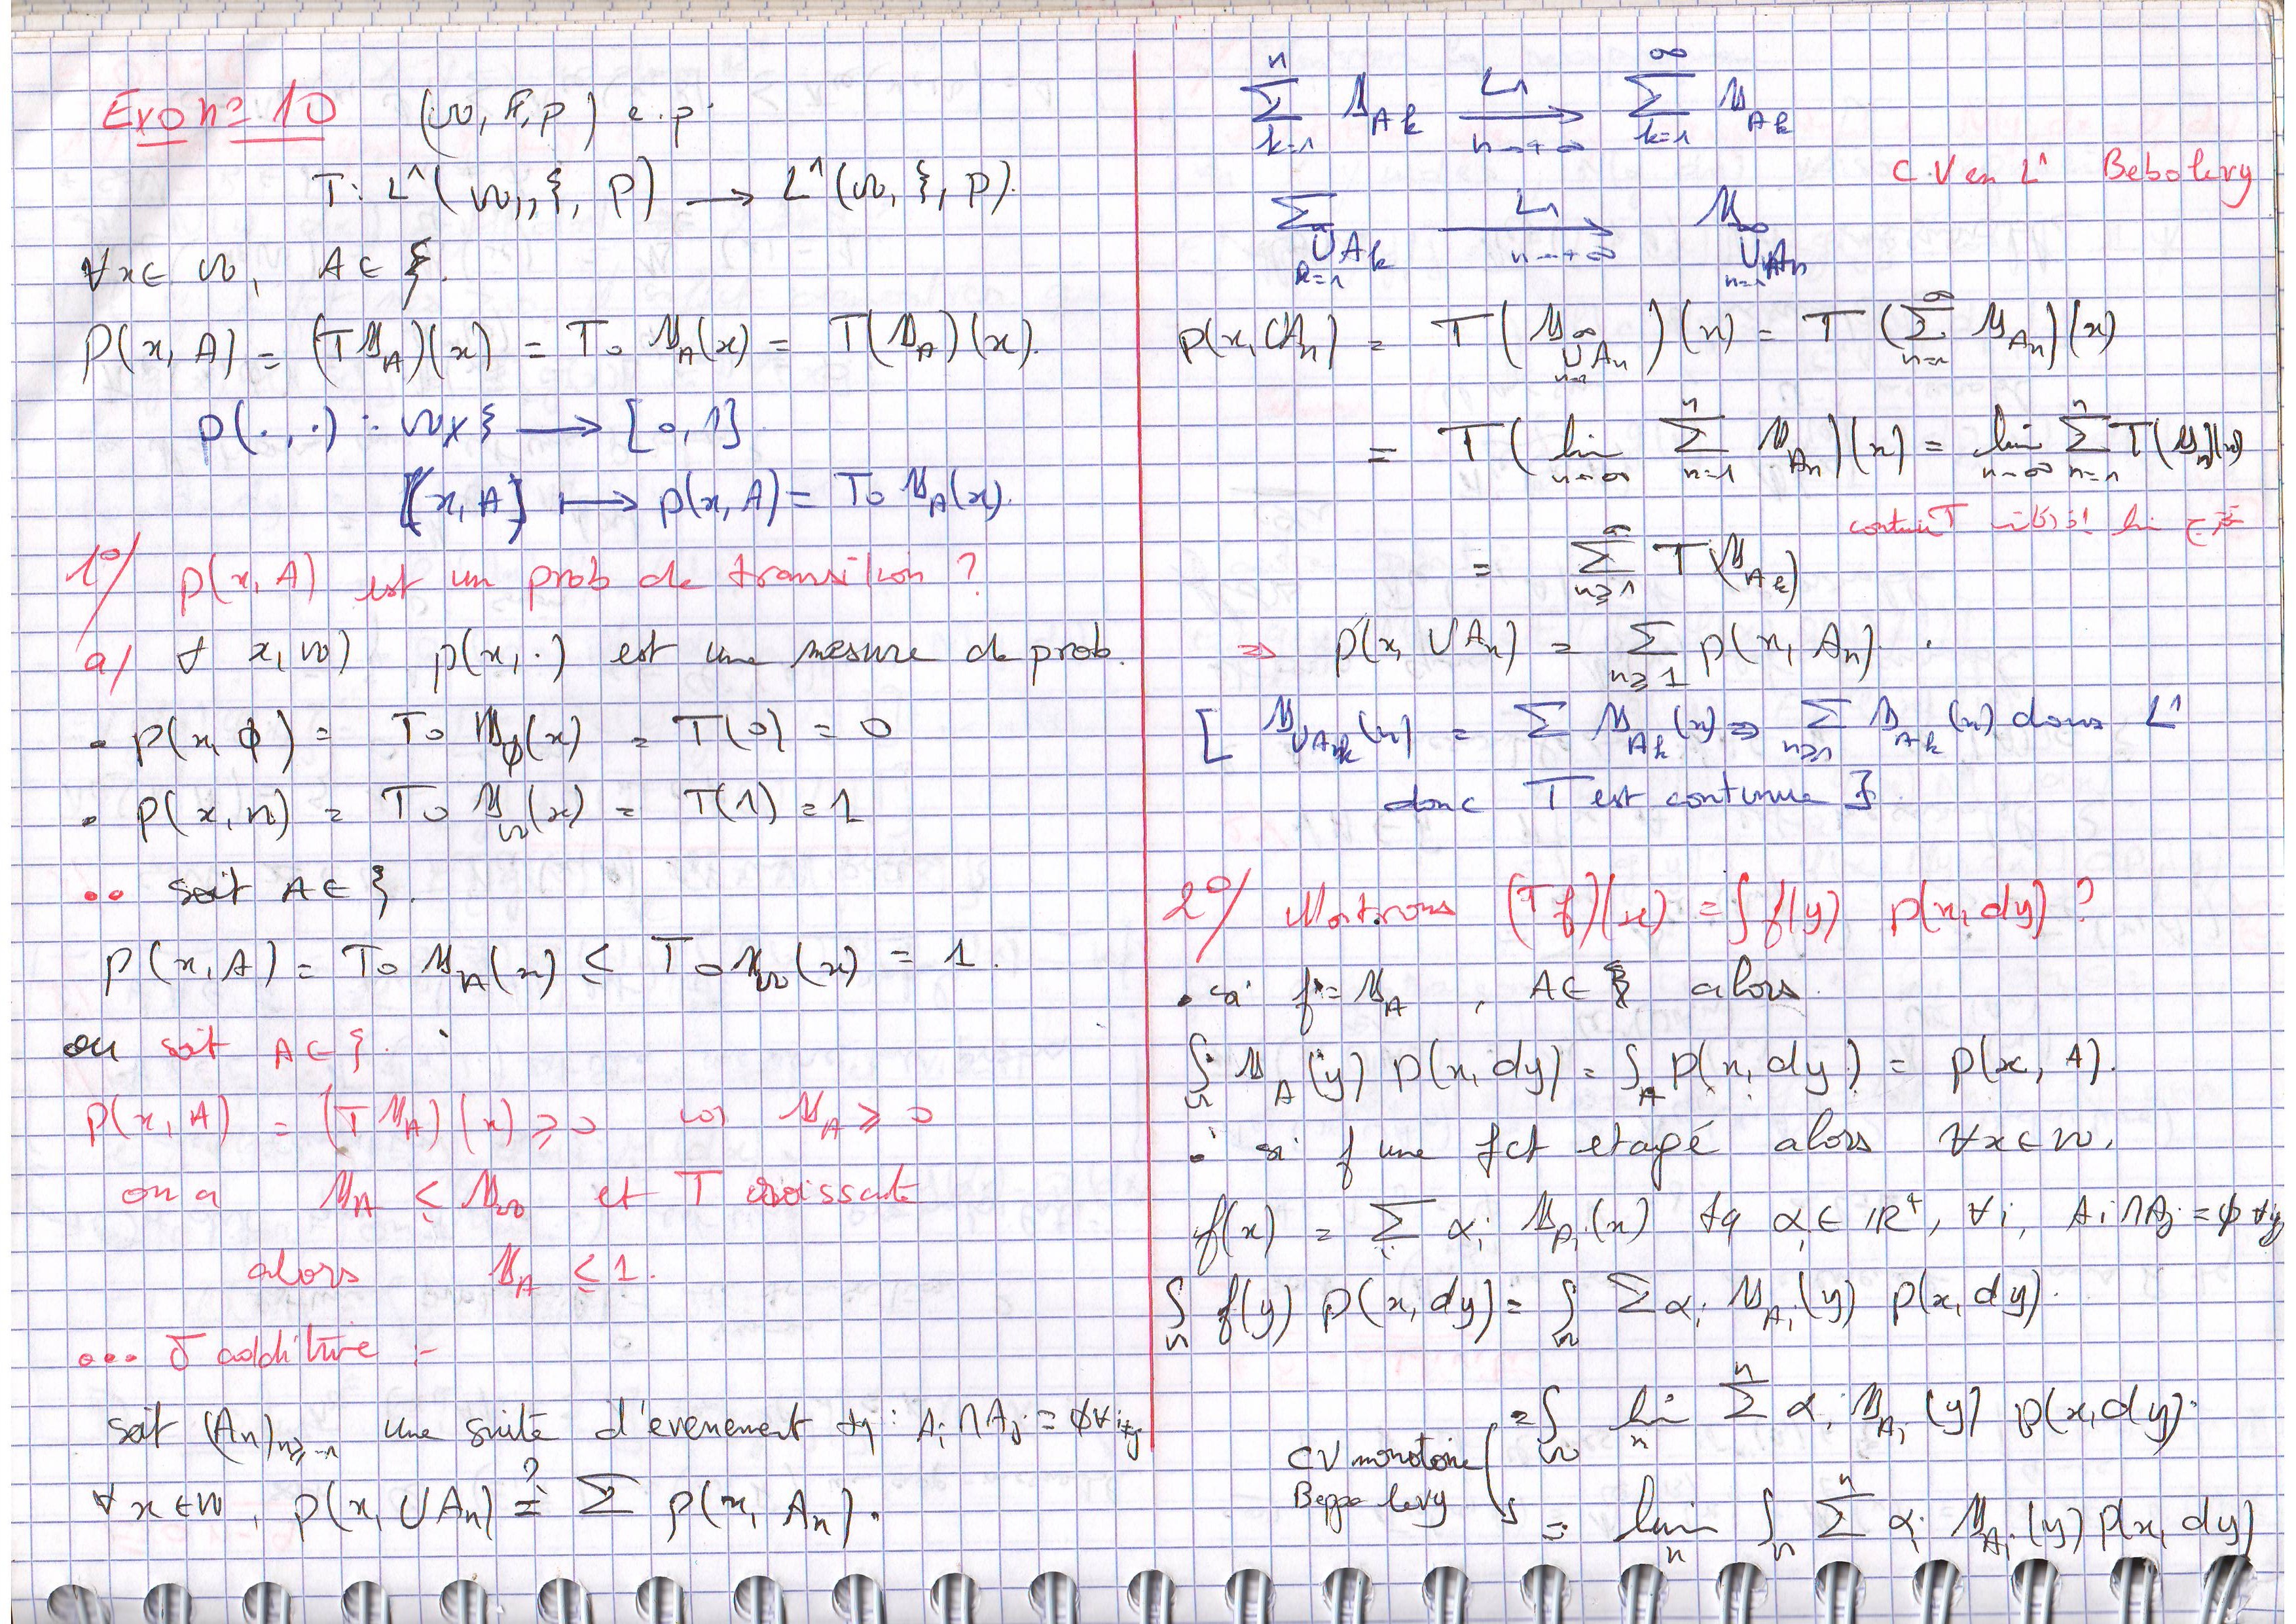 Exo n° 10 (Ω, F, P) e.p.
T: L¹(Ω, F, P) → L¹(Ω, F, P).
∀x ∈ Ω, A ∈ F.
P(x, A) = (T 1_A)(x) = T∘1_A(x) = T(1_A)(x).
p(·,·) : Ω×F → [0, 1]
(x, A) ↦ p(x, A) = T∘1_A(x).
1°/ p(x, A) est un prob de transition ?
a/ ∀ x, Ω) p(x, ·) est une mesure de prob.
• p(x, ϕ) = T∘1_ϕ(x) = T(0) = 0
• p(x, Ω) = T∘1_Ω(x) = T(1) = 1
•• soit A ∈ F.
p(x, A) = T∘1_A(x) ≤ T∘1_Ω(x) = 1.
ou soit A ∈ F.
p(x, A) = (T 1_A)(x) ≥ 0 car 1_A ≥ 0
on a 1_A ≤ 1_Ω et T croissante
alors 1_A ≤ 1.
••• σ additive :-
soit (An)_{n≥1} une suite d'evenement tq : Ai ∩ Aj = ϕ ∀ i≠j
∀ x ∈ Ω, p(x, ∪An) =? Σ p(x, An).
Σ_{k=1}^{n} 1_{Ak} →^{L1}_{n→+∞} Σ_{k=1}^{∞} 1_{Ak}
C.V en L¹ Bebolevy
Σ_{∪_{k=1} Ak} →^{L1}_{n→+∞} 1_{∪_{n=1}^{∞} An}
p(x, ∪An) = T(1_{∪_{n=1}^{∞} An})(x) = T(Σ_{n=1}^{∞} 1_{An})(x)
= T(lim_{n→∞} Σ_{n=1}^{n} 1_{An})(x) = lim_{n→∞} Σ_{n=1}^{n} T(1_{An})(x)
continu T lim
= Σ_{n≥1}^{∞} T(1_{Ak})
⇒ p(x, ∪An) = Σ_{n≥1} p(x, An).
[ 1_{∪Ak}(x) = Σ 1_{Ak}(x) ⇒ Σ_{n≥1} 1_{Ak}(x) dans L¹
donc T est continue ]
2°/ Montrons (Tf)(x) = ∫ f(y) p(x, dy) ?
• si f = 1_A, A ∈ F alors
∫_Ω 1_A(y) p(x, dy) = ∫_A p(x, dy) = p(x, A).
• si f une fct etagé alors ∀x ∈ Ω,
f(x) = Σ_i αi 1_{Ai}(x) tq αi ∈ IR⁺, ∀i, Ai ∩ Aj = ϕ ∀ i≠j
∫_Ω f(y) p(x, dy) = ∫_Ω Σ αi 1_{Ai}(y) p(x, dy).
= ∫_Ω lim_n Σ^n αi 1_{Ai}(y) p(x, dy).
CV monotone
Beppo levy
= lim_n ∫_Ω Σ^n αi 1_{Ai}(y) p(x, dy)